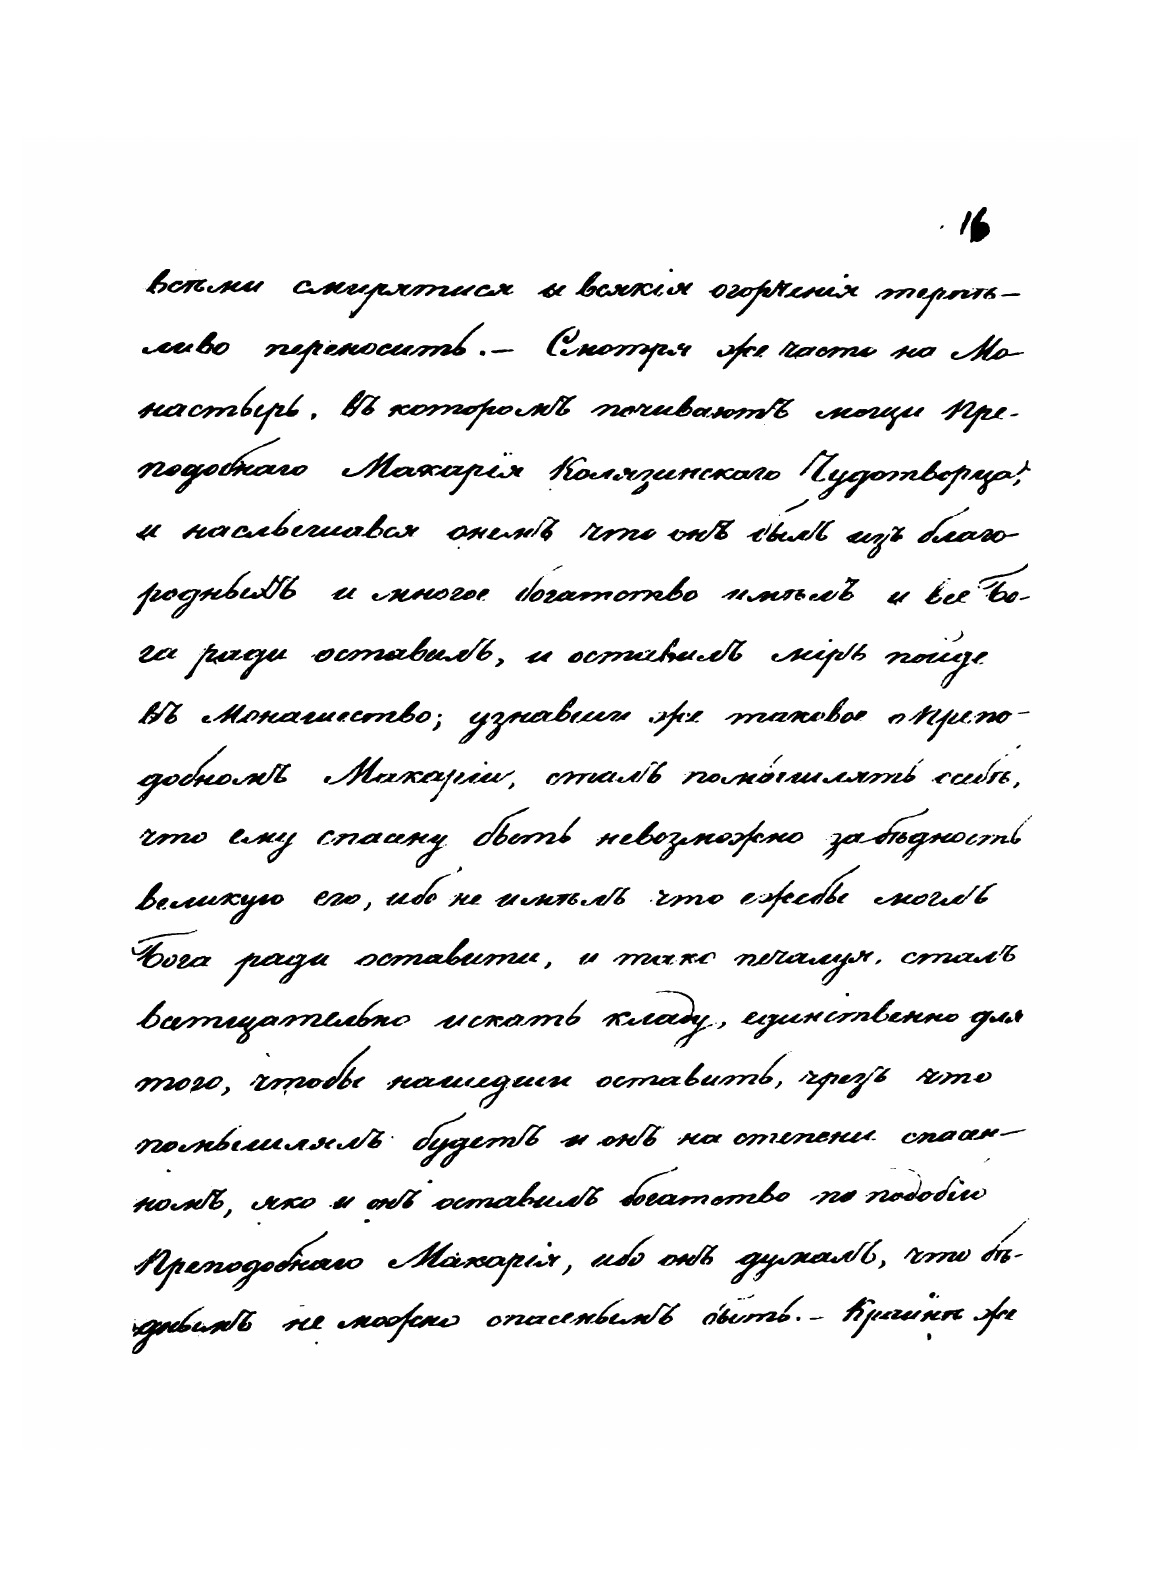 16
всѣми смирятися и всякія огорченія терпѣ-
ливо переносить. - Смотря же часто на Мо-
настырь, въ которомъ почиваютъ мощи Пре-
подобнаго Макарія Колязинскаго Чудотворца,
и наслышався онемъ что онъ былъ изъ благо-
родныхъ и многое богатство имѣлъ и все Бо-
га ради оставилъ, и оставилъ міръ пойде
въ Монашество; узнавши же таковое о Препо-
добномъ Макаріи, сталъ помышлять себѣ,
что ему спасену быть невозможно за бѣдность
великую его, ибо не имѣлъ что ежебы моглъ
Бога ради оставити, и тако печалуя, сталъ
вотщательно искать кладу, единственно для
того, чтобы нашедши оставить, чрезъ что
помышлялъ будетъ и онъ на степени спасен-
номъ, яко и онъ оставилъ богатство по подобію
Преподобнаго Макарія, ибо онъ думалъ, что бѣ-
днымъ не можно спасеннымъ быть. - Крайнѣ же